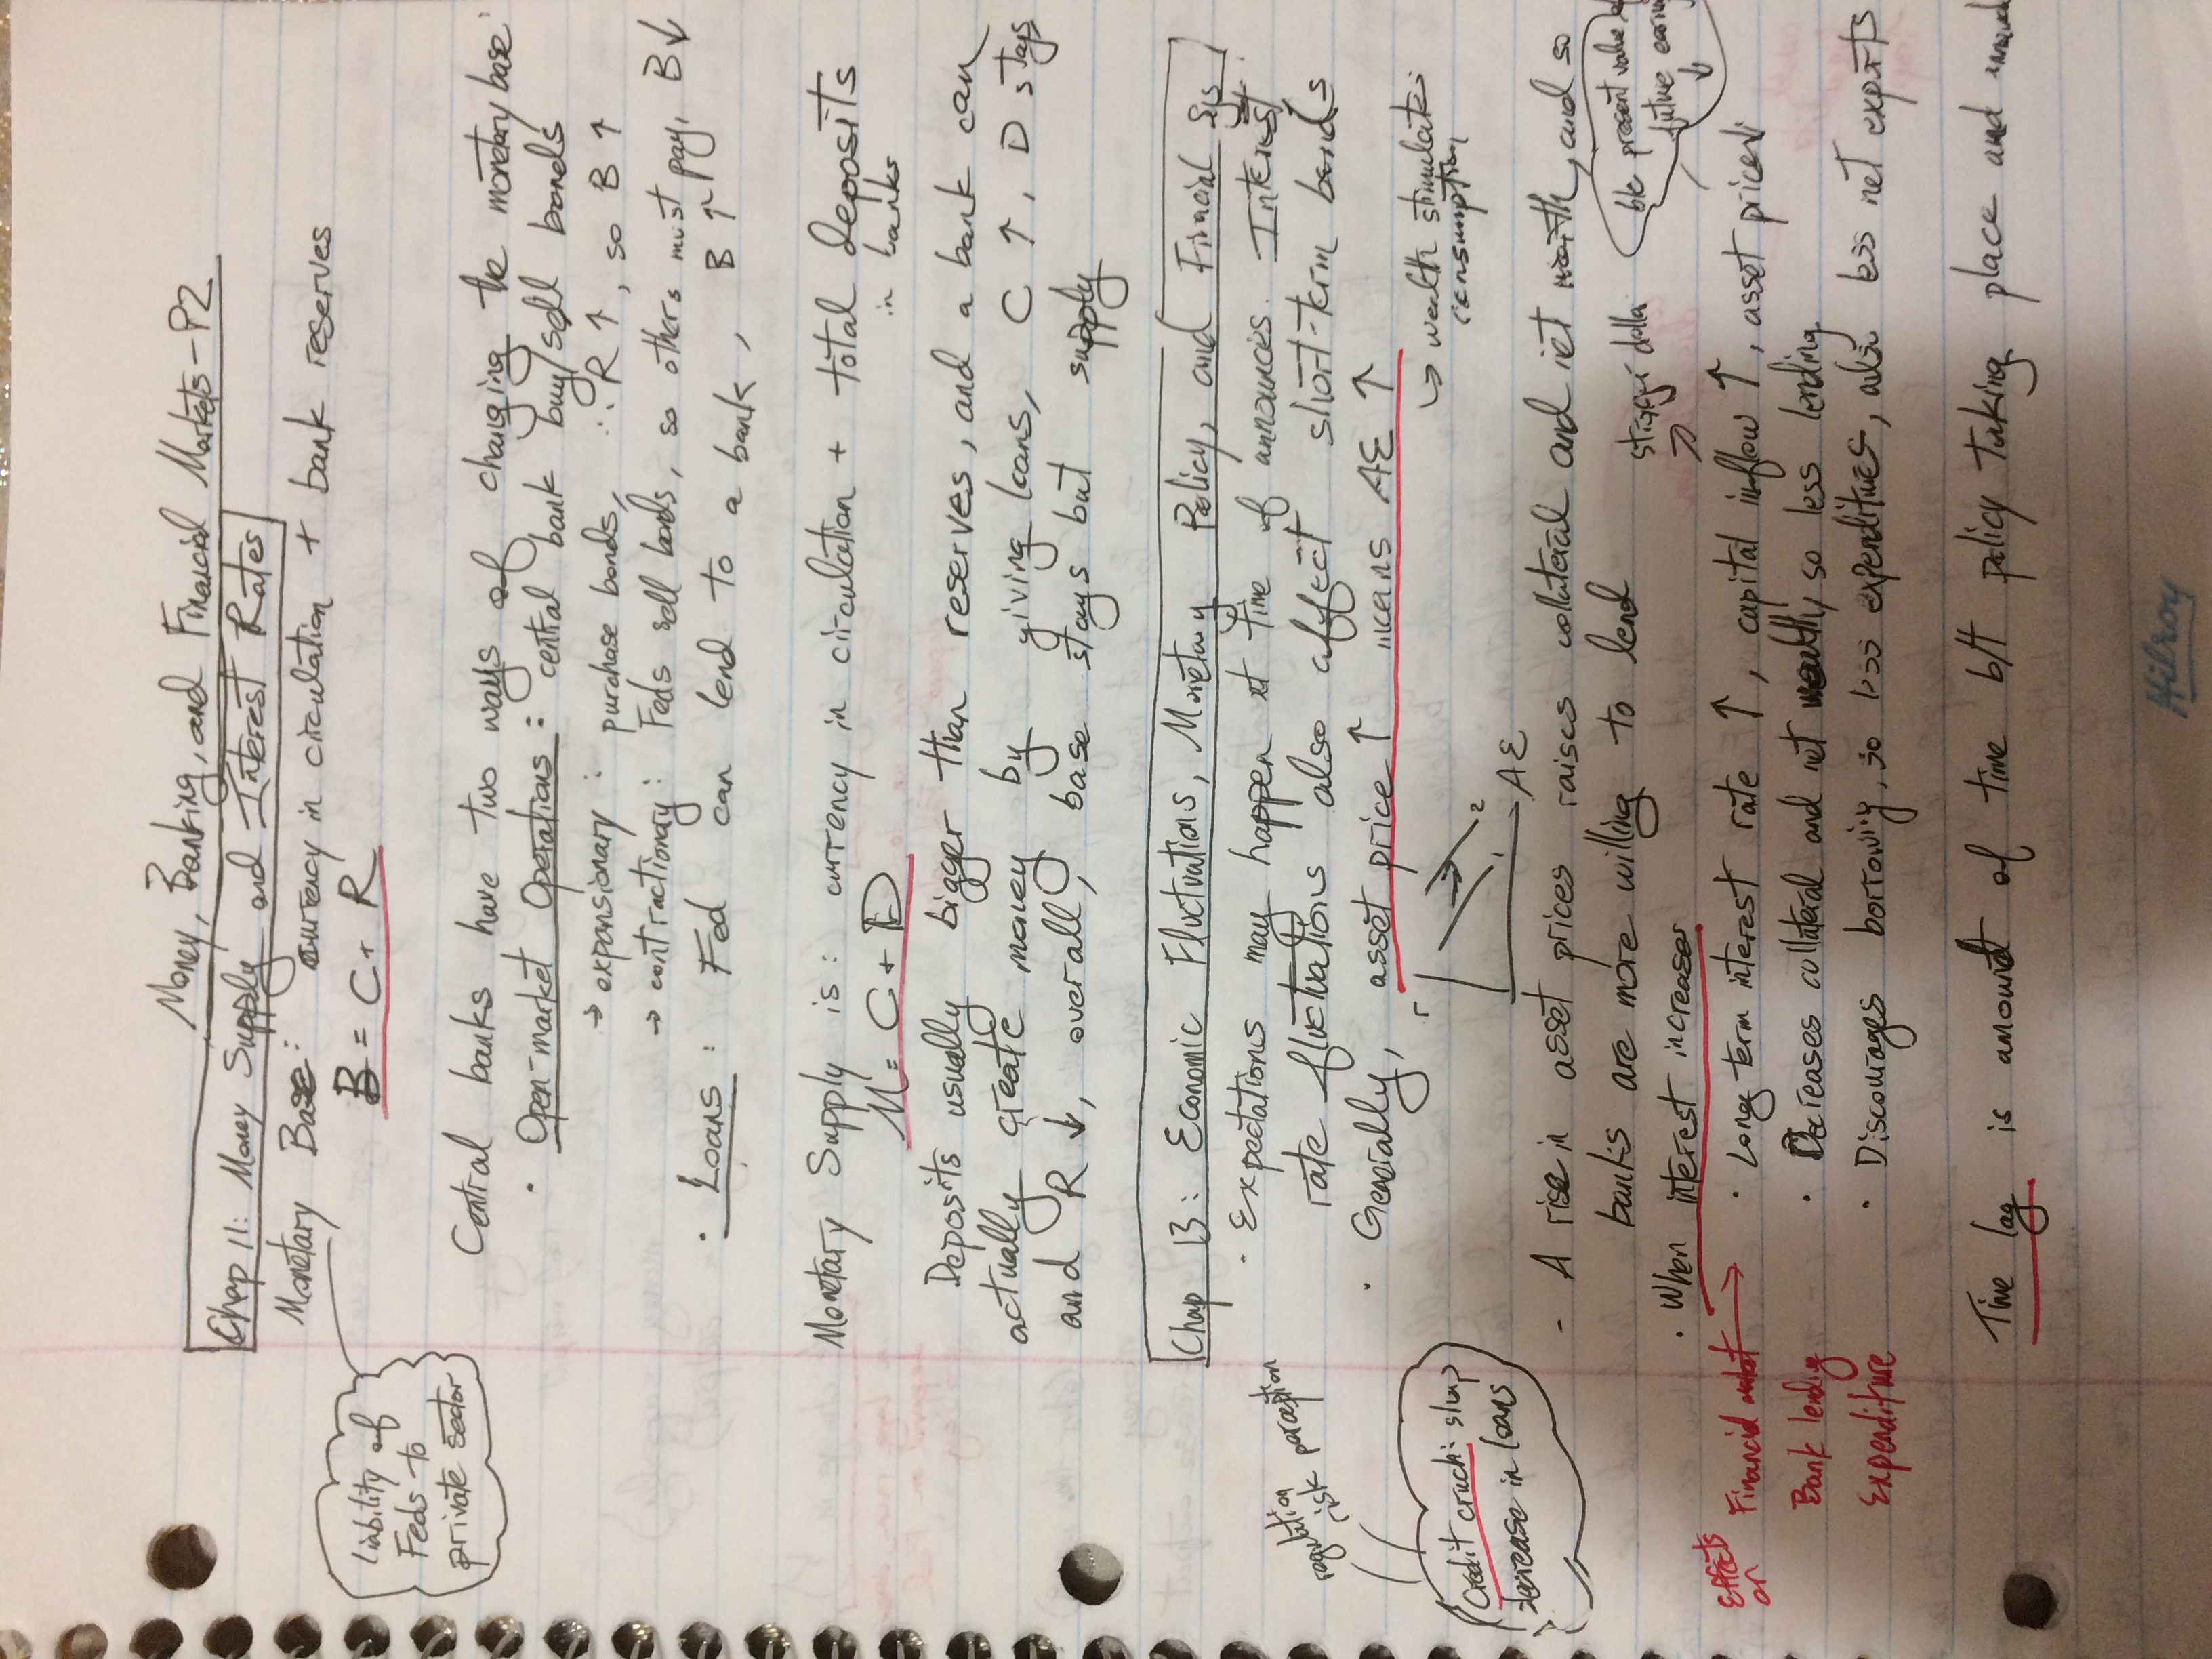 Money, Banking, and Financial Markets - P2
Chap 11: Money Supply and Interest Rates
Monetary Base: currency in circulation + bank reserves
B = C + R
Liability of
Feds to
private sector
Central banks have two ways of changing the monetary base:
· Open-market Operations: central bank buy/sell bonds
→ expansionary: purchase bonds, ∴ R ↑, so B ↑
→ contractionary: Feds sell bonds, so others must pay, B ↓
· Loans: Fed can lend to a bank, B ↑
Monetary Supply is: currency in circulation + total deposits
in banks
M = C + D
Deposits usually bigger than reserves, and a bank can
actually create money by giving loans, C ↑, D stays
and R ↓, overall, base stays but supply
Chap 13: Economic Fluctuations, Monetary Policy, and Finacial Sys
· Expectations may happen at time of announces. Interest
rate fluctuations also affect short-term bonds
regulation
risk perception
· Generally, asset price ↑ means AE ↑
↳ wealth stimulates
consumption
r
2
1
AE
Credit cruch: sharp
decrease in loans
- A rise in asset prices raises collateral and net worth, and so
banks are more willing to lend
stronger dolla
b/c present value of
future earnin
↓
· When interest increases
Effects
on
Financial market → · Long term interest rate ↑, capital inflow ↑, asset price ↓
Bank lendig · Decreases collateral and net wealth, so less lending
Expenditure · Discourages borrowing, so less expenditures, also less net exports
Time lag is amount of time b/t policy taking place and
Hilroy